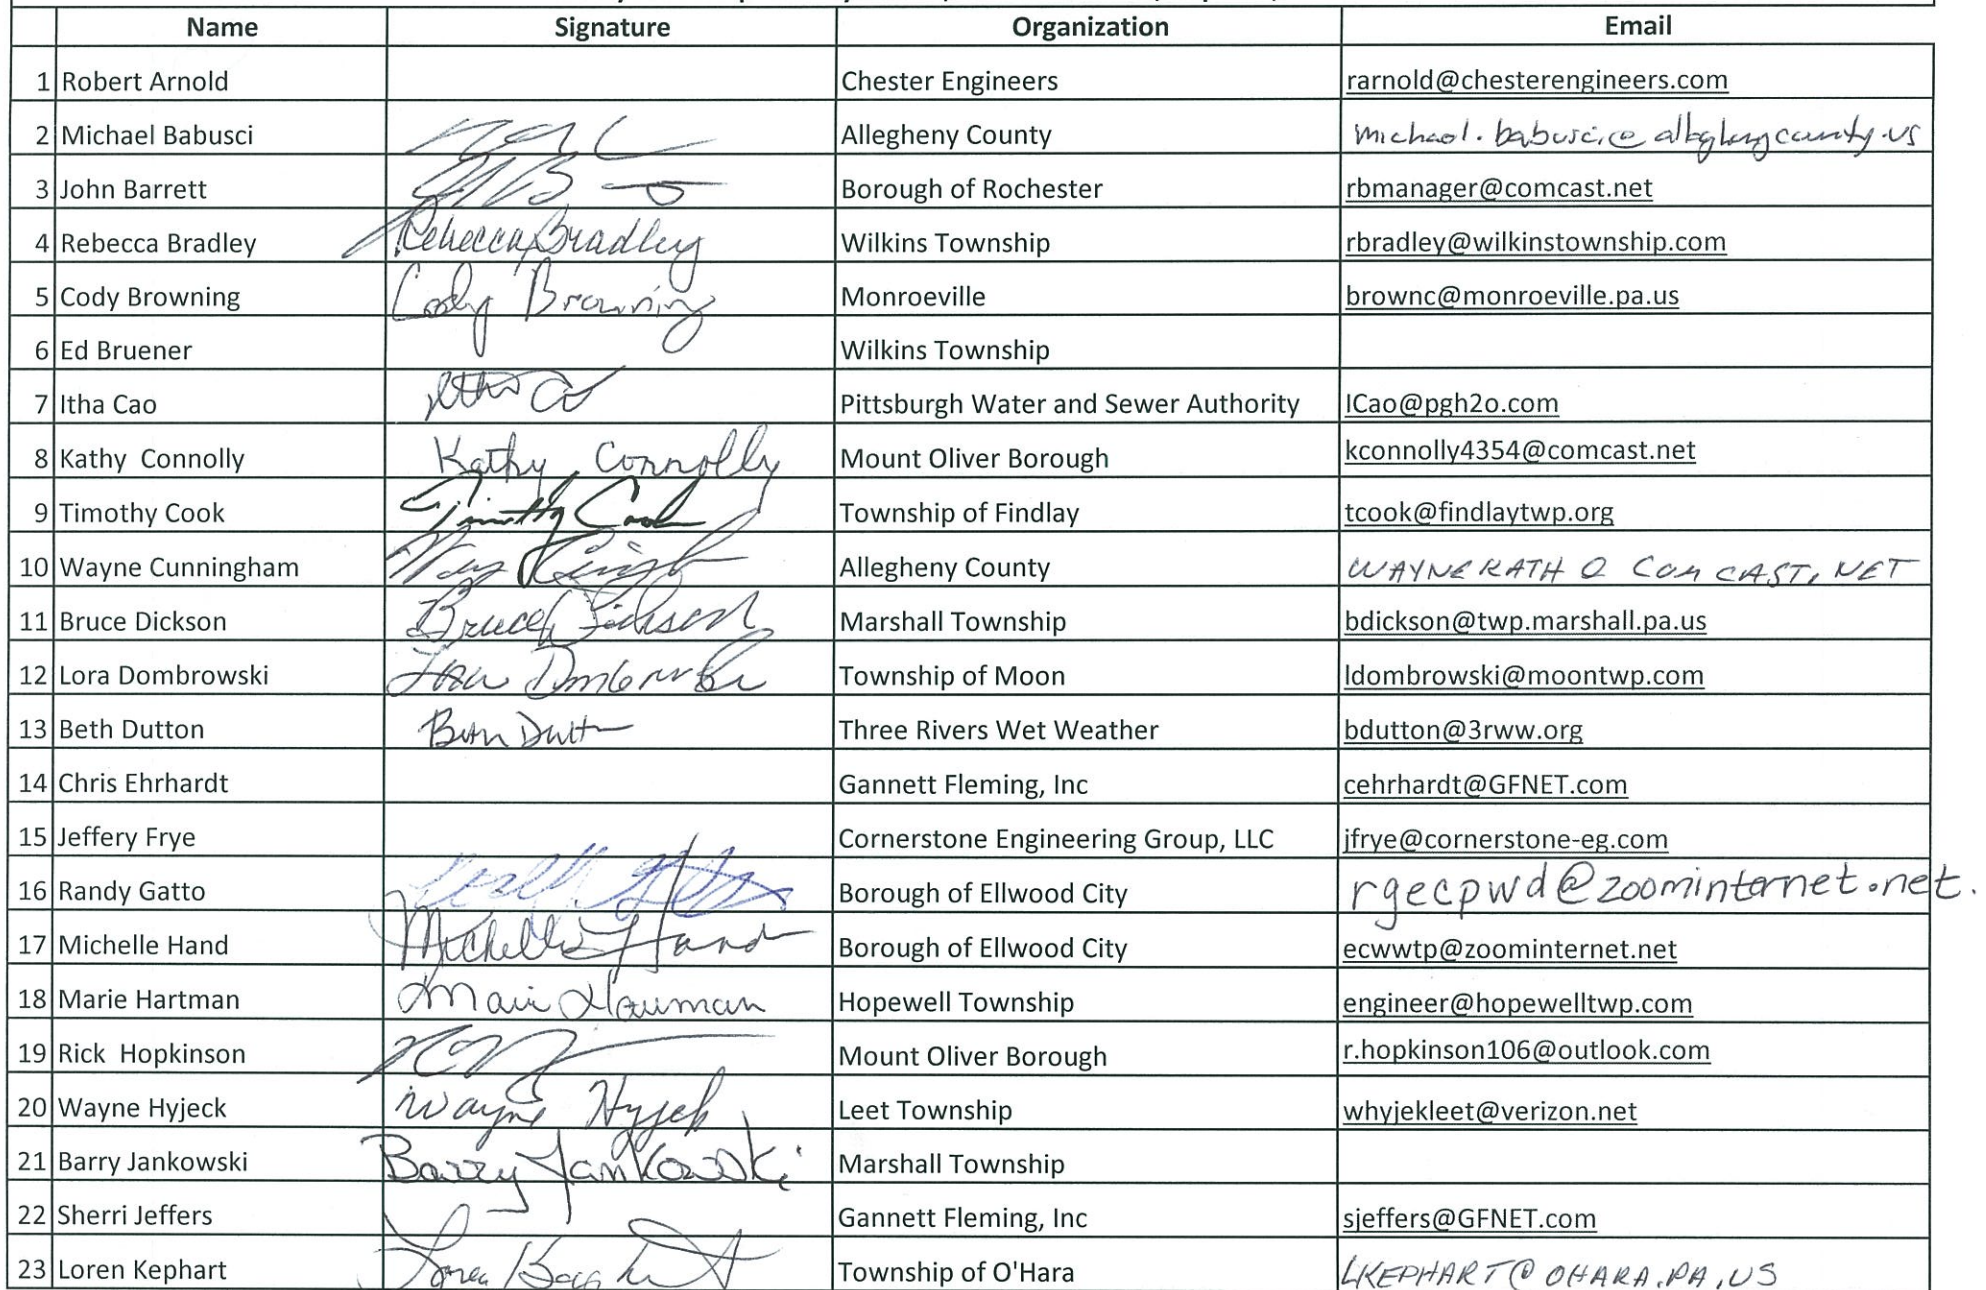 Name Signature Organization Email
1 Robert Arnold Chester Engineers rarnold@chesterengineers.com
2 Michael Babusci Allegheny County michael.babusci@alleghenycounty.us
3 John Barrett Borough of Rochester rbmanager@comcast.net
4 Rebecca Bradley Rebecca Bradley Wilkins Township rbradley@wilkinstownship.com
5 Cody Browning Cody Browning Monroeville brownc@monroeville.pa.us
6 Ed Bruener Wilkins Township
7 Itha Cao Itha Cao Pittsburgh Water and Sewer Authority ICao@pgh2o.com
8 Kathy Connolly Kathy Connolly Mount Oliver Borough kconnolly4354@comcast.net
9 Timothy Cook Timothy Cook Township of Findlay tcook@findlaytwp.org
10 Wayne Cunningham Allegheny County WAYNERATH @ COMCAST.NET
11 Bruce Dickson Bruce Dickson Marshall Township bdickson@twp.marshall.pa.us
12 Lora Dombrowski Lora Dombrowski Township of Moon ldombrowski@moontwp.com
13 Beth Dutton Beth Dutton Three Rivers Wet Weather bdutton@3rww.org
14 Chris Ehrhardt Gannett Fleming, Inc cehrhardt@GFNET.com
15 Jeffery Frye Cornerstone Engineering Group, LLC jfrye@cornerstone-eg.com
16 Randy Gatto Borough of Ellwood City rgecpwd@zoominternet.net.
17 Michelle Hand Michelle Hand Borough of Ellwood City ecwwtp@zoominternet.net
18 Marie Hartman Marie Hartman Hopewell Township engineer@hopewelltwp.com
19 Rick Hopkinson Mount Oliver Borough r.hopkinson106@outlook.com
20 Wayne Hyjeck Wayne Hyjek Leet Township whyjekleet@verizon.net
21 Barry Jankowski Barry Jankowski Marshall Township
22 Sherri Jeffers Gannett Fleming, Inc sjeffers@GFNET.com
23 Loren Kephart Loren Kephart Township of O'Hara LKEPHART@OHARA.PA.US